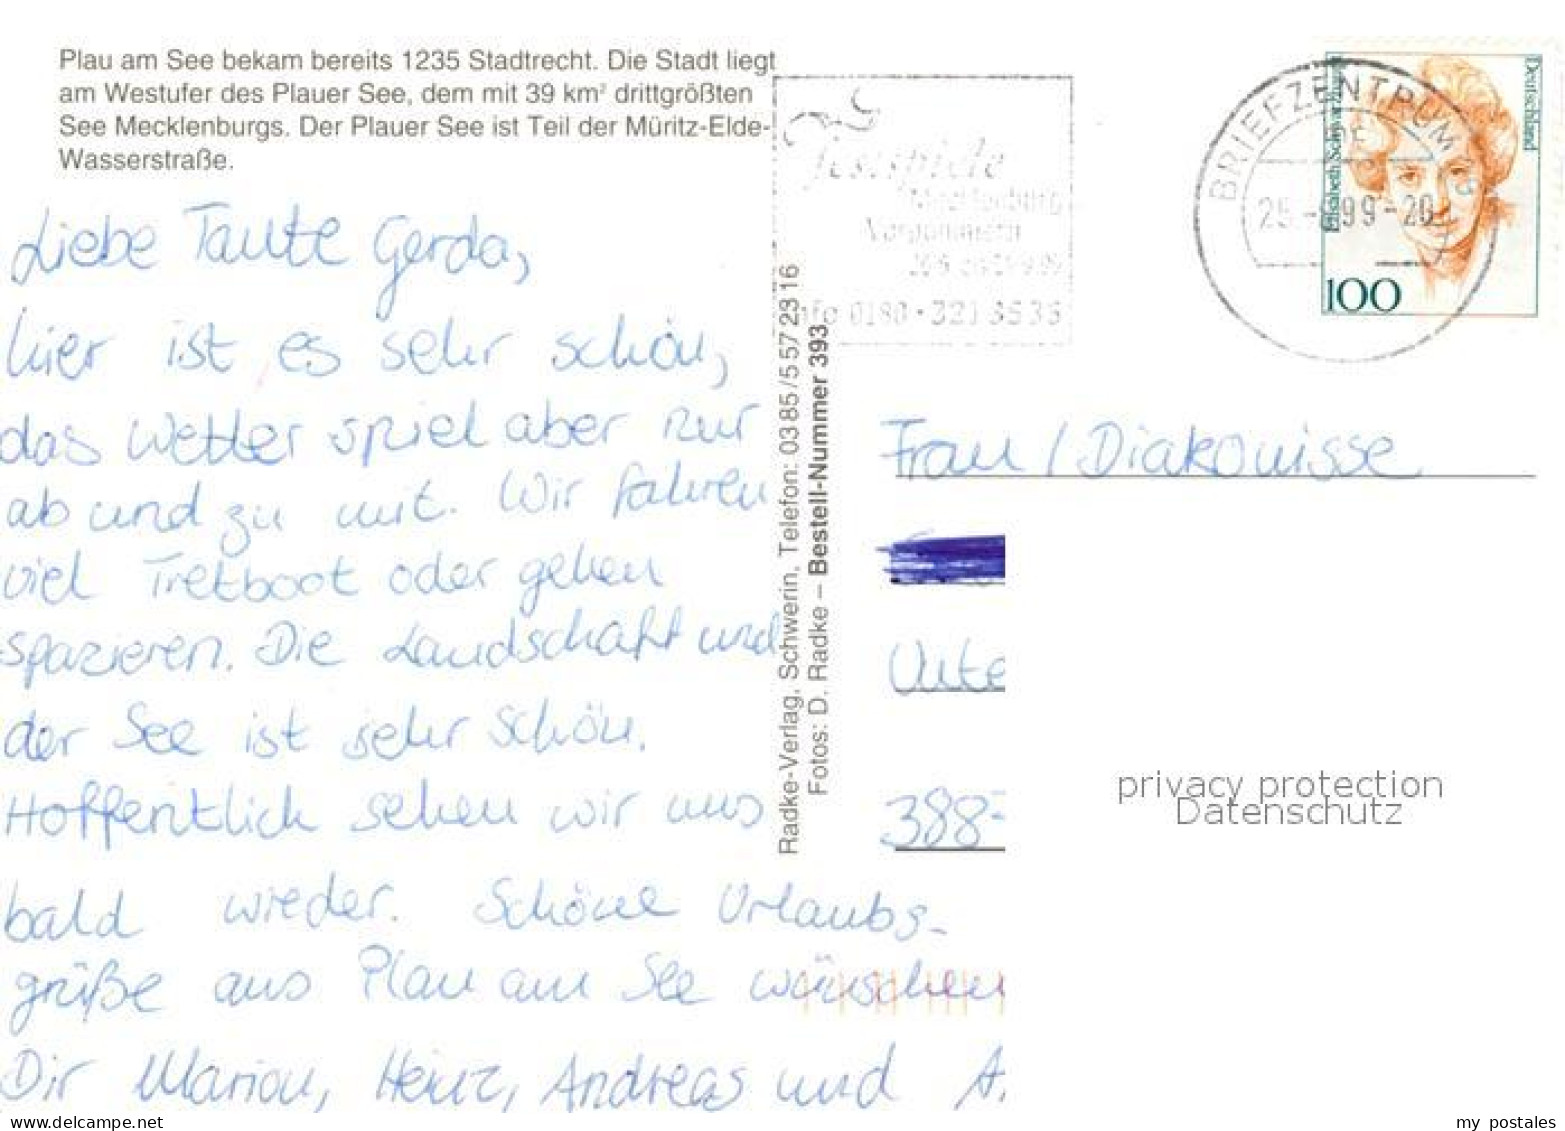 Plau am See bekam bereits 1235 Stadtrecht. Die Stadt liegt
am Westufer des Plauer See, dem mit 39 km² drittgrößten
See Mecklenburgs. Der Plauer See ist Teil der Müritz-Elde-
Wasserstraße.
Liebe Tante Gerda,
hier ist es sehr schön,
das Wetter spielt aber nur
ab und zu mit. Wir fahren
viel Tretboot oder gehen
spazieren. Die Landschaft und
der See ist sehr schön.
Hoffentlich sehen wir uns
bald wieder. Schöne Urlaubs-
grüße aus Plau am See wünschen
Dir Marion, Heinz, Andreas und A.
Radke-Verlag, Schwerin, Telefon: 03 85 / 5 57 23 16
Fotos: D. Radke – Bestell-Nummer 393
Festspiele
Mecklenburg
Vorpommern
Info 0180 · 321 3535
BRIEFZENTRUM
25 99-20
Deutschland
Elisabeth Schwarzhaupt
100
Frau / Diakonisse
Unte
388
privacy protection
Datenschutz
delcampe.net
my postales